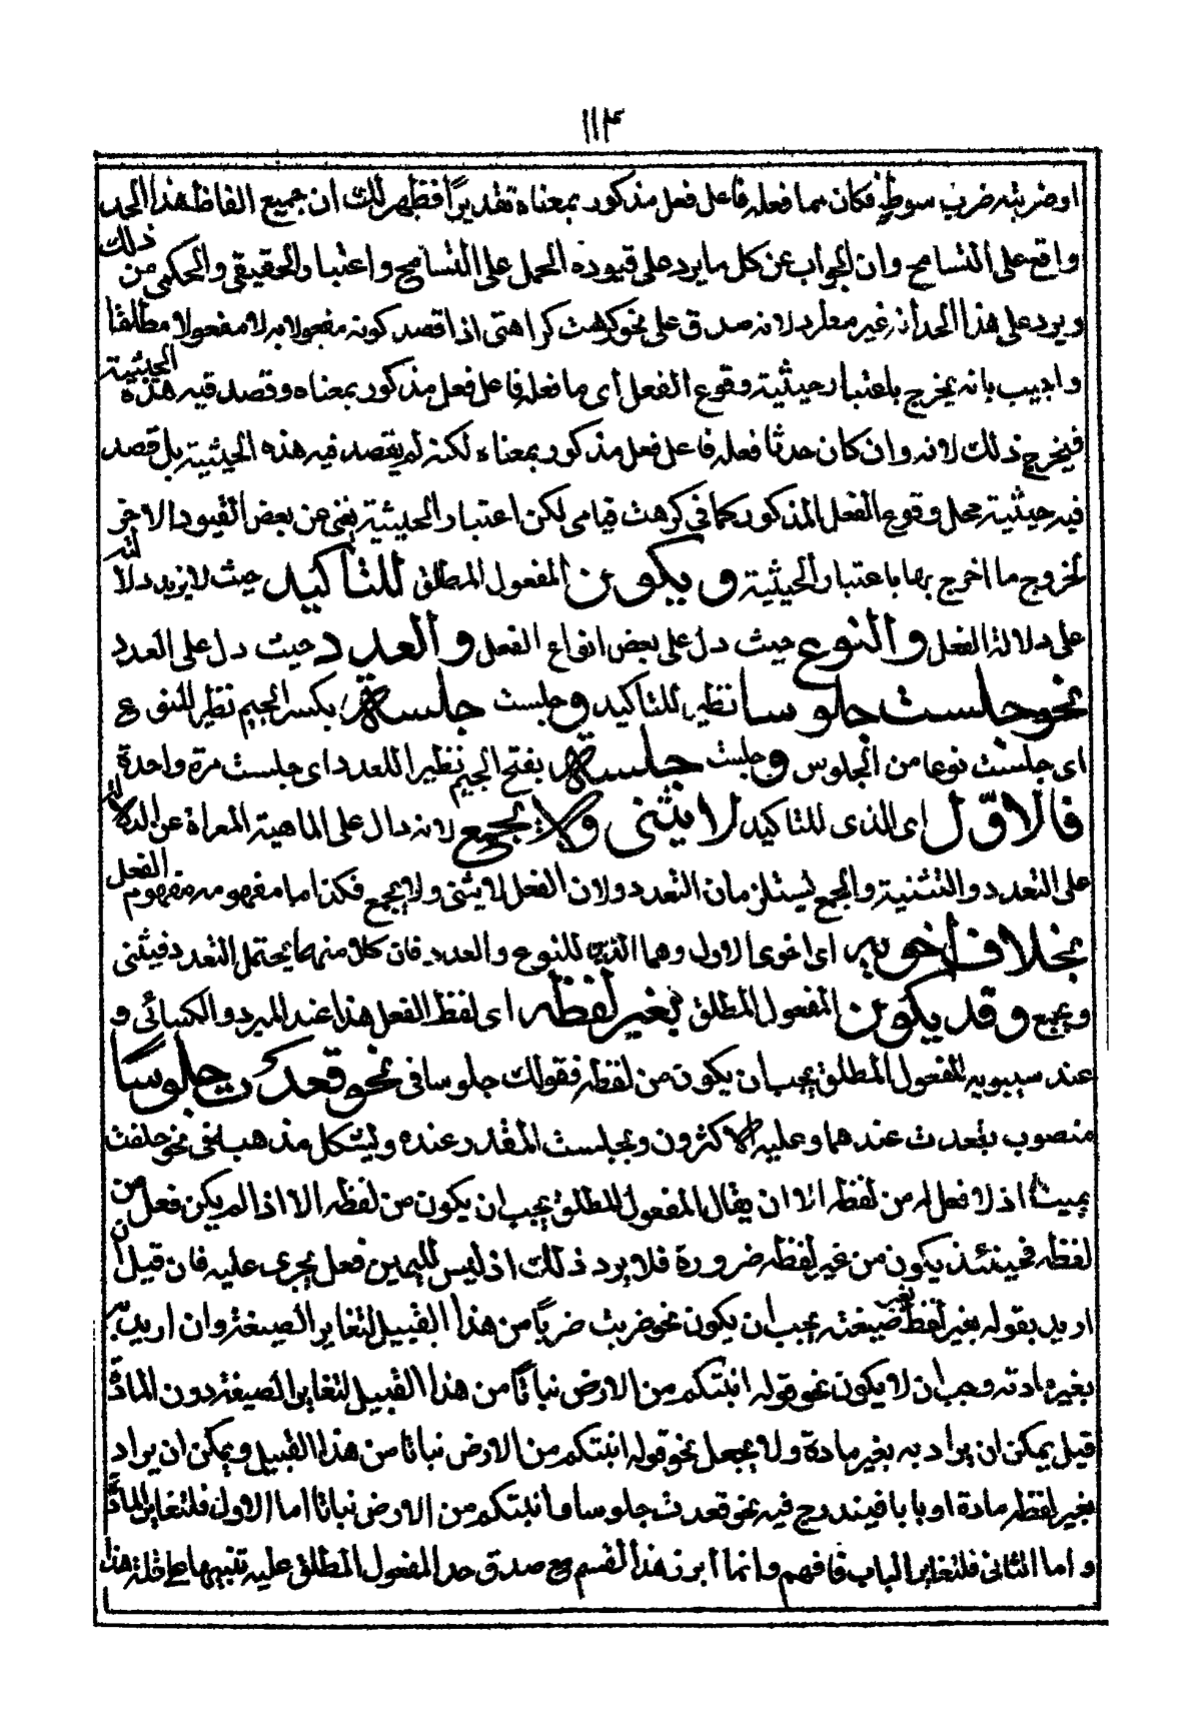 ١١٤
او ضربته ضرب سوط فكان مما فعله فاعل فعل مذكور بمعناه تقديرًا فظهر لك ان جميع الفاظ هذا الحد
واقع على التسامح وان الجواب عن كل ما يرد على قيوده الحمل على التسامح واعتبار الحقيقي والحكمي من ذلك
ويرد على هذا الحد انه غير مطرد لانه صدق على نحو كرهت كراهتي اذا قصد كونه مفعولا به لا مفعولا مطلقا
واجيب بانه يخرج باعتبار حيثية وقوع الفعل اى ما فعله فاعل فعل مذكور بمعناه وقصد فيه هذه الحيثية
فيخرج ذلك لانه وان كان حدثا فعله فاعل فعل مذكور بمعناه لكنه لم يقصد فيه هذه الحيثية بل قصد
فيه حيثية محل وقوع الفعل المذكور كما في كرهت قيامى لكن اعتبار الحيثية يغنى عن بعض القيود الاخر
لخروج ما اخرج بها باعتبار الحيثية ويكون المفعول المطلق للتأكيد حيث لا يزيد دلالته
على دلالة الفعل والنوع حيث دل على بعض انواع الفعل والعدد حيث دل على العدد
نحو جلست جلوسا نظير للتاكيد و جلست جلسة بكسر الجيم نظير للنوع
اى جلست نوعا من الجلوس و جلست جلسة بفتح الجيم نظير اللعدد اى جلست مرة واحدة
فالاوّل اى الذى للتاكيد لا يثنى ولا يجمع لانه دال على الماهية المعراة عن الدلالة
على التعدد والتثنية والجمع يستلزمان التعدد ولان الفعل لا يثنى ولا يجمع فكذا ما مفهومه مفهوم الفعل
بخلاف أخويه اى اخوى الاول وهما الذى للنوع والعدد فان كلا منهما يحتمل التعدد فيثنى
ويجمع وقد يكون المفعول المطلق بغير لفظه اى لفظ الفعل هذا عند المبرد والكسائى و
عند سيبويه المفعول المطلق يجب ان يكون من لفظه فقولك جلوسا في نحو قعدت جلوسًا
منصوب بقعدت عندهما وعليه الاكثرون وبجلست المقدر عنده ويشكل مذهبه في نحو حلفت
يمينا اذ لا فعل له من لفظه الا ان يقال المفعول المطلق يجب ان يكون من لفظه الا اذا لم يكن فعل من
لفظه فحينئذ يكون من غير لفظه ضرورة فلا يرد ذلك اذ ليس لليمين فعل يجرى عليه فان قيل ان
اريد بقوله بغير لفظه صيغته يجب ان يكون نحو ضربت ضربًا من هذا القبيل لتغاير الصيغة وان اريد به
بغير مادته وجب ان لا يكون نحو قوله انبتكم من الارض نباتًا من هذا القبيل لتغاير الصيغة دون المادة
قيل يمكن ان يراد به بغير مادة ولا يجعل نحو قوله انبتكم من الارض نباتا من هذا القبيل ويمكن ان يراد
بغير لفظه مادة او بابا فيندرج فيه نحو قعدت جلوسا وانبتكم من الارض نباتا اما الاول فلتغاير المادة
واما الثانى فلتغاير الباب فافهم وانما أبرز هذا القسم مع صدق حد المفعول المطلق عليه تنبيها على قلة هذا